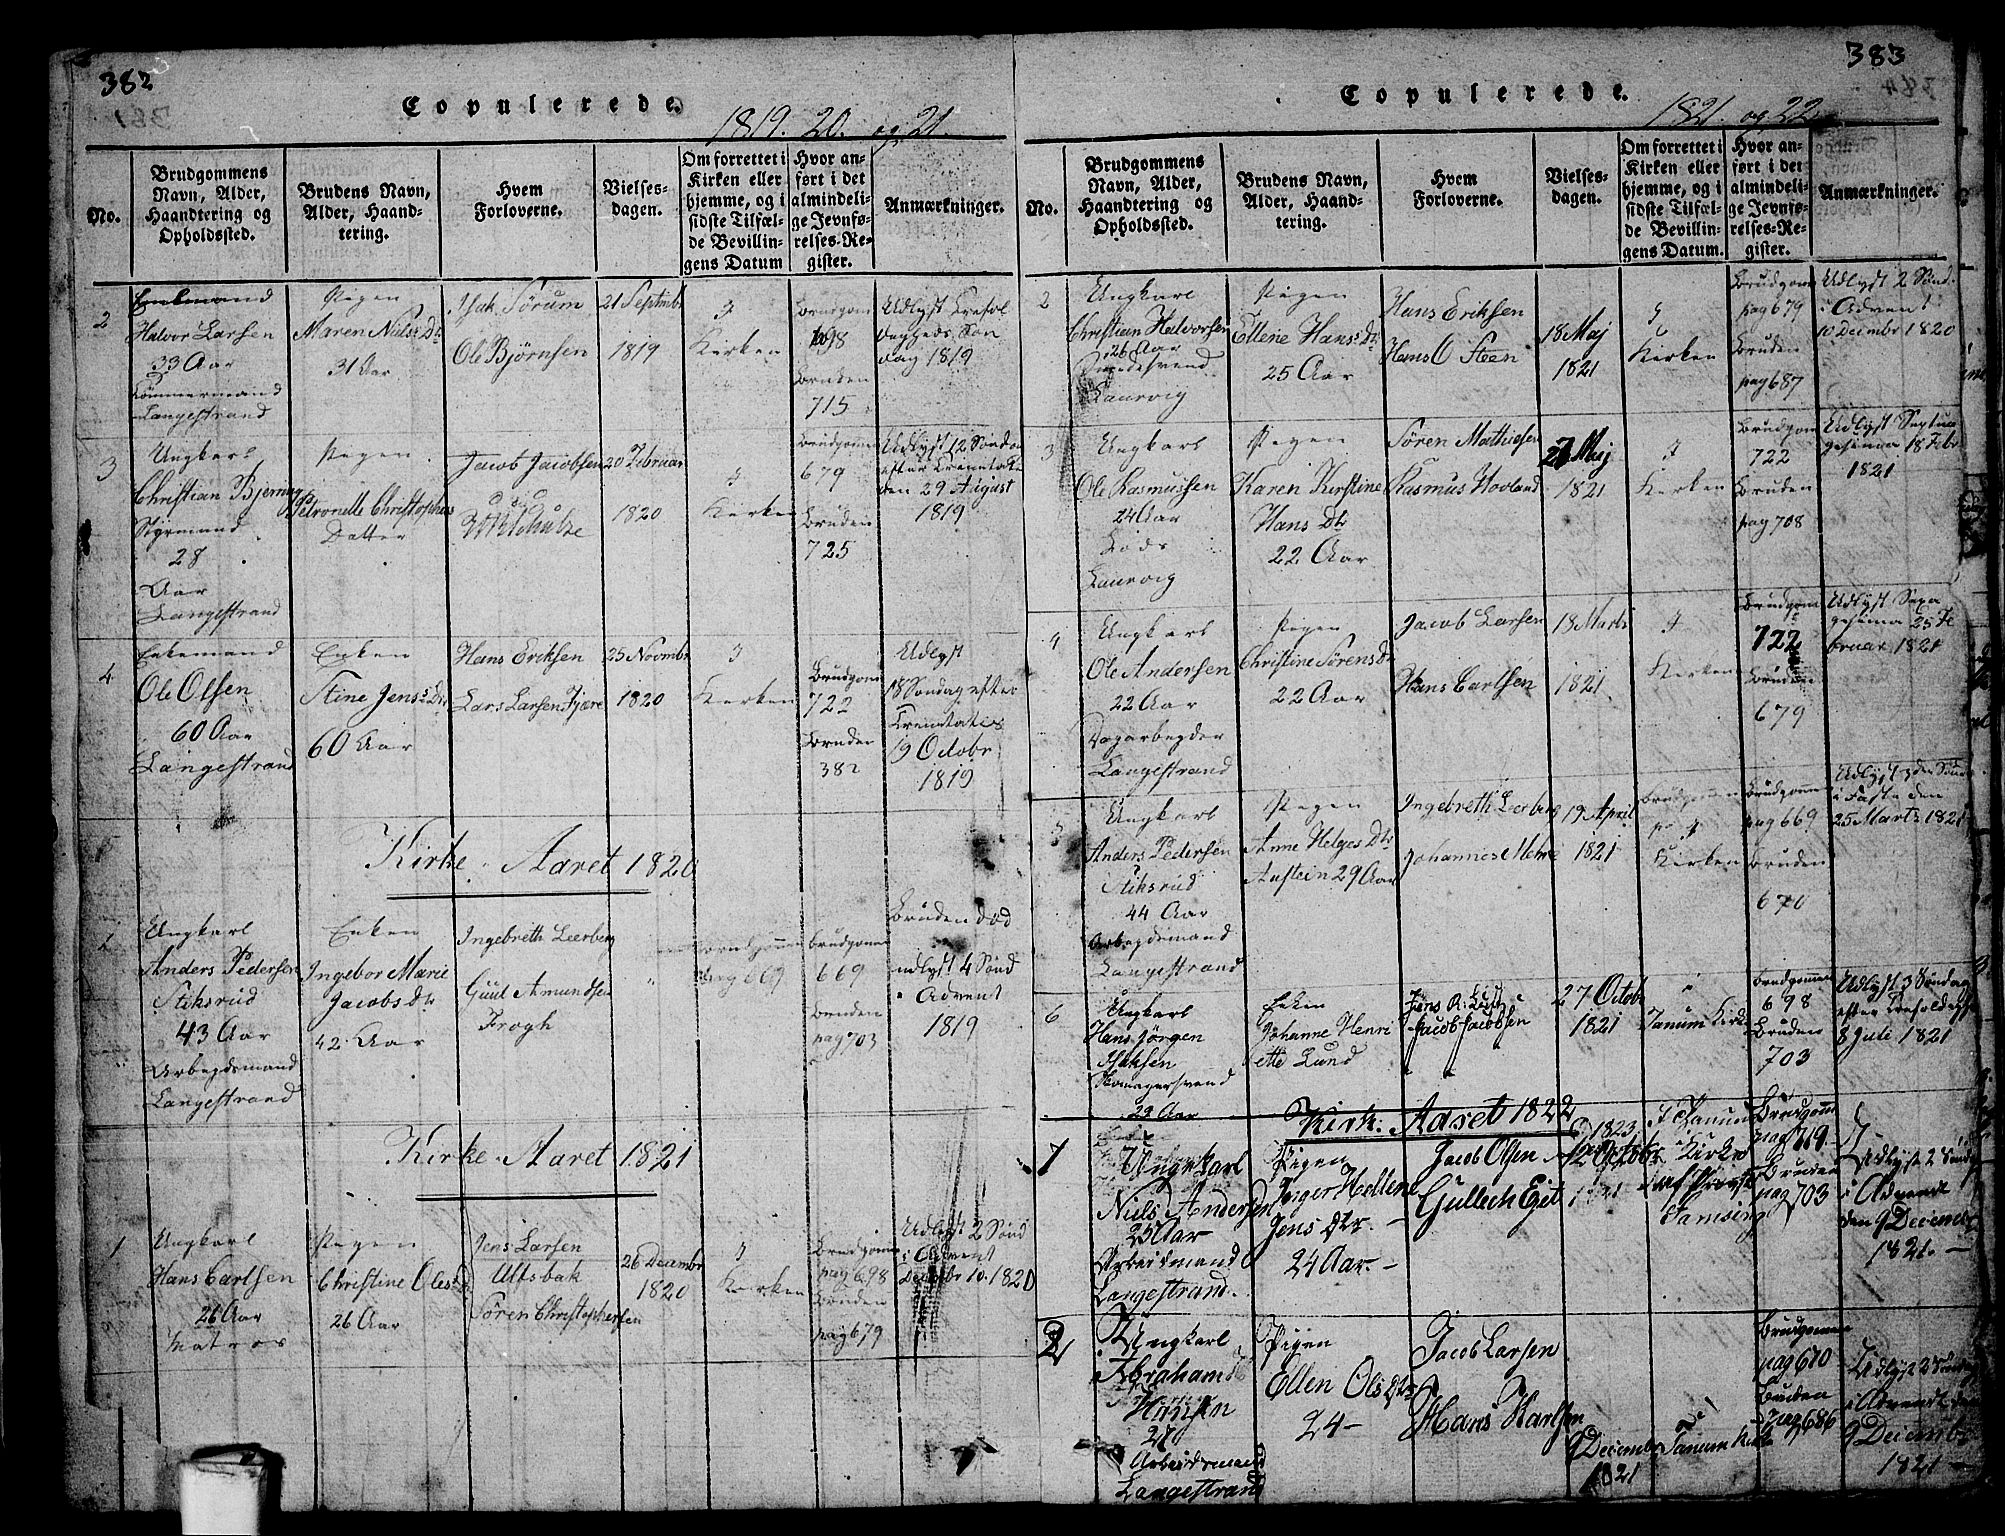 382
Copulerede.
1819. 20. og 21.
No.
Brudgommens Navn, Alder, Haandtering og Opholdssted.
Brudens Navn, Alder, Haandtering.
Hvem Forloverne.
Vielsesdagen.
Om forrettet i Kirken eller hjemme, og i sidste Tilfælde Bevillingens Datum
Hvor anført i det almindelige Jevnførelses-Register.
Anmærkninger.
2
Halvor Larsen
33 Aar
Tømmermand
Langestrand
Pigen
Maren Niels Dtr
31 Aar
Isak Sørum
Ole Bjørnsen
21 Septmbr
1819
I
Kirken
Brudgom
698
Bruden
715
Udlyst
dag 1819
3
Ungkarl
Christian Bjerring
Styrmand
28
Aar
Langestrand
Pigen
Petronelle Christophers
Datter
Jacob Jacobsen
20 Februar
1820
I
Kirken
Brudgom
679
Bruden
725
Udlyst 12 Søndag
efter Trinitatis
den 29 August
1819
4
Enkemand
Ole Olsen
60 Aar
Langestrand
Enken
Stine Jens Dtr
60 Aar
Hans Eriksen
Lars Larsen Fjære
25 Novmbr
1820
I
Kirken
Brudgom
722
Bruden
382
Udlyst
18 Søndag efter
Trinitatis
19 Octobr
1819
Kirke-Aaret 1820
1
Ungkarl
Anders Pedersen
Stiksrud
43 Aar
Arbeydsmand
Langestrand
Enken
Ingebor Marie
Jacobs Dtr
42 Aar
Ingebreth Leerberg
Guul Amundsen
Frogh
Brudgommen
pag 669
Brudgom
669
Bruden
pag 703
Bruden død
udlyst 4 Sønd
i Advent
1819
Kirke-Aaret 1821
1
Ungkarl
Hans Carlsen
26 Aar
Matros
Pigen
Christine Oles Dtr
26 Aar
Jens Larsen
Ulfsbak
Søren Christophersen
26 Decembr
1820
I
Kirken
Brudgom
pag 698
Bruden
pag 679
Udlyst 2 Sønd
i Advent
Decembr 10. 1820
383
Copulerede.
1821 og 22
No.
Brudgommens Navn, Alder, Haandtering og Opholdssted.
Brudens Navn, Alder, Haandtering.
Hvem Forloverne.
Vielsesdagen.
Om forrettet i Kirken eller hjemme, og i sidste Tilfælde Bevillingens Datum.
Hvor anført i det almindelige Jevnførelses-Register.
Anmærkninger.
2
Ungkarl
Christian Halvorsen
26 Aar
Smedesvend
Laurvig
Pigen
Ellene Hans Dtr
25 Aar
Hans Eriksen
Hans O Steen
18 Maj
1821
I
Kirken
Brudgom
pag 679
Bruden
pag 687
Udlyst 2 Sønd.
i Advent
10 Decembr 1820
3
Ungkarl
Ole Rasmussen
24 Aar
Lods
Laurvig
Pigen
Karen Kirstine
Hans Dtr
22 Aar
Søren Mathiesen
Rasmus Hovland
27 Maj
1821
I
Kirken
Brudgom
722
Bruden
pag 708
Udlyst Septua
gesima 18 Febr
1821
4
Ungkarl
Ole Andersen
22 Aar
Dagarbeyder
Langestrand
Pigen
Christine Sørens Dtr
22 Aar
Jacob Larsen
Hans Carlsen
18 Marts
1821
I
Kirken
Brudgom
722
Bruden
679
Udlyst Sexa
gesima 25 Fe
bruar 1821
5
Ungkarl
Anders Pedersen
Stiksrud
44 Aar
Arbeydsmand
Langestrand
Pigen
Anne Helges Dtr
Austein 29 Aar
Ingebreth Leerberg
Johannes Mehre
19 April
1821
I
Kirken
Brudgom
pag 669
Bruden
670
Udlyst 3den Sønd
i Faste den
25 Marts 1821
6
Ungkarl
Hans Jørgen
Isaksen
29 Aar
Enken
Johanne Henri
ette Lund
Jacob Jacobsen
27 Octobr
1821
Tanum Kirke
Brudgommen
698
Bruden
703
Udlyst 3 Søndag
efter Trefoldighed
8 Juli 1821
Kirk. Aaret 1822
1
Ungkarl
Niels Andersen
25 Aar
Arbeidsmand
Langestrand.
Pigen
Inger Hellene
Jens Dtr.
24 Aar.
Jacob Olsen
Gullech Egit
1823
12 Octobr
I Tanum
Kirke
af Provst
Brudgom
pag 719.
Bruden
pag 703
Udlyst 2 Sønd
i Advendt
den 9 Decembr
1821.
2
Ungkarl
Abraham
Hansen
27
Arbeidsmand
Langestrand
Pigen
Ellen Ols Dtr
24
Jacob Larsen
Hans Karlsen
9 Decembr
1821
Tanum Kirke
Brudgommen
pag 670
Bruden
pag 686
Udlyst 2 Søndag
i Advendt den
9 Decembr
1821